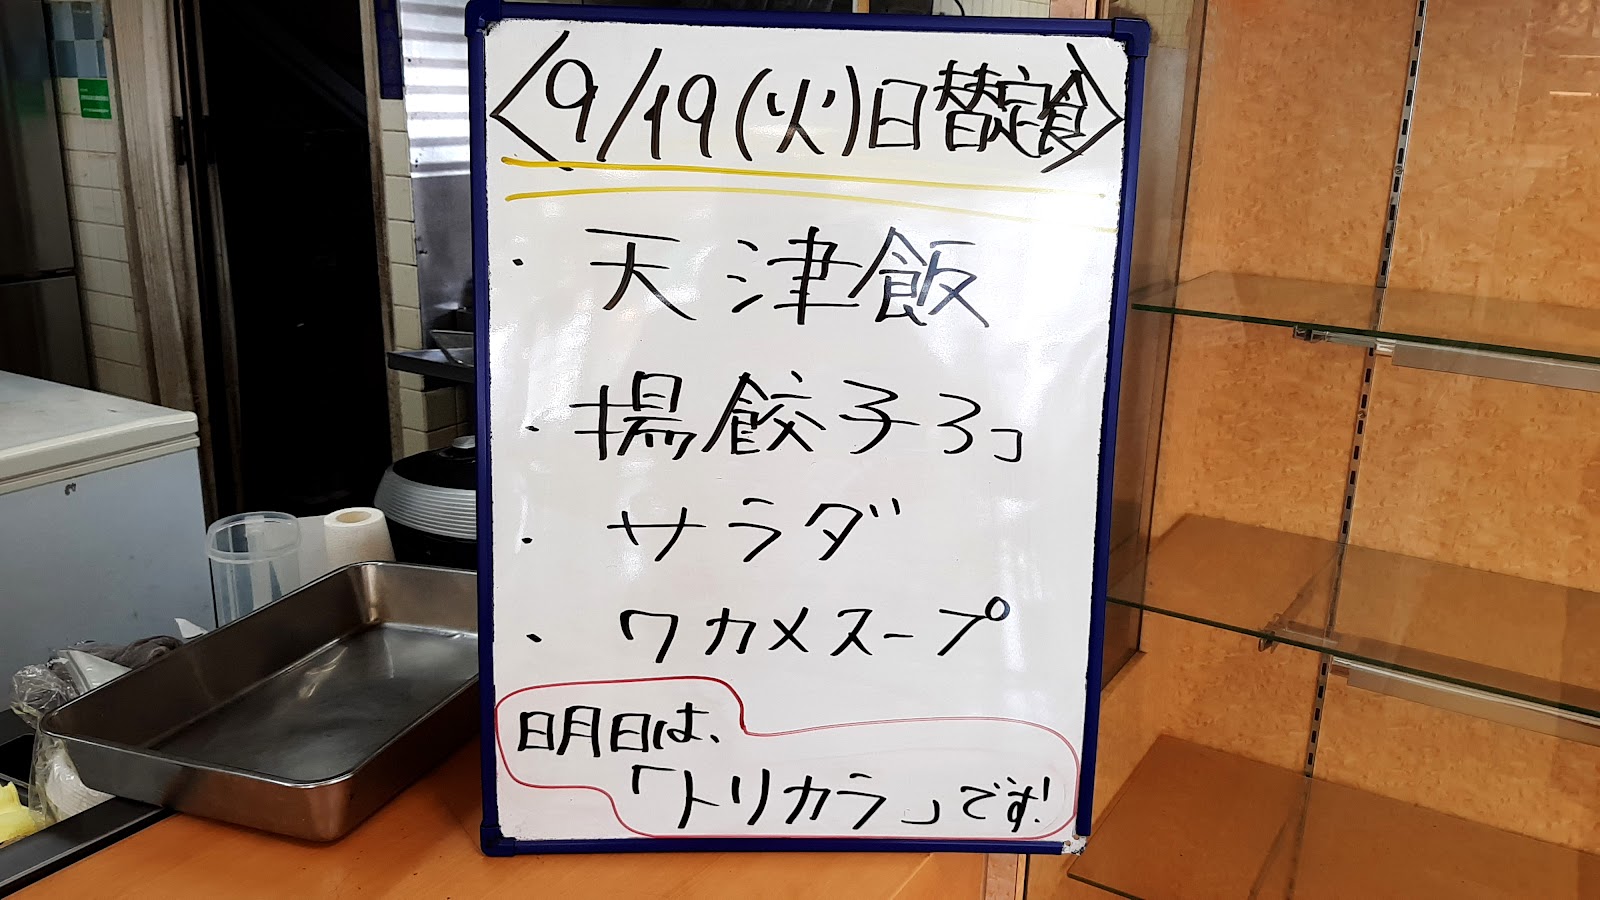 〈9/19(火)日替定食〉
・天津飯
・揚餃子3コ
・サラダ
・ワカメスープ
明日は、
「トリカラ」です!